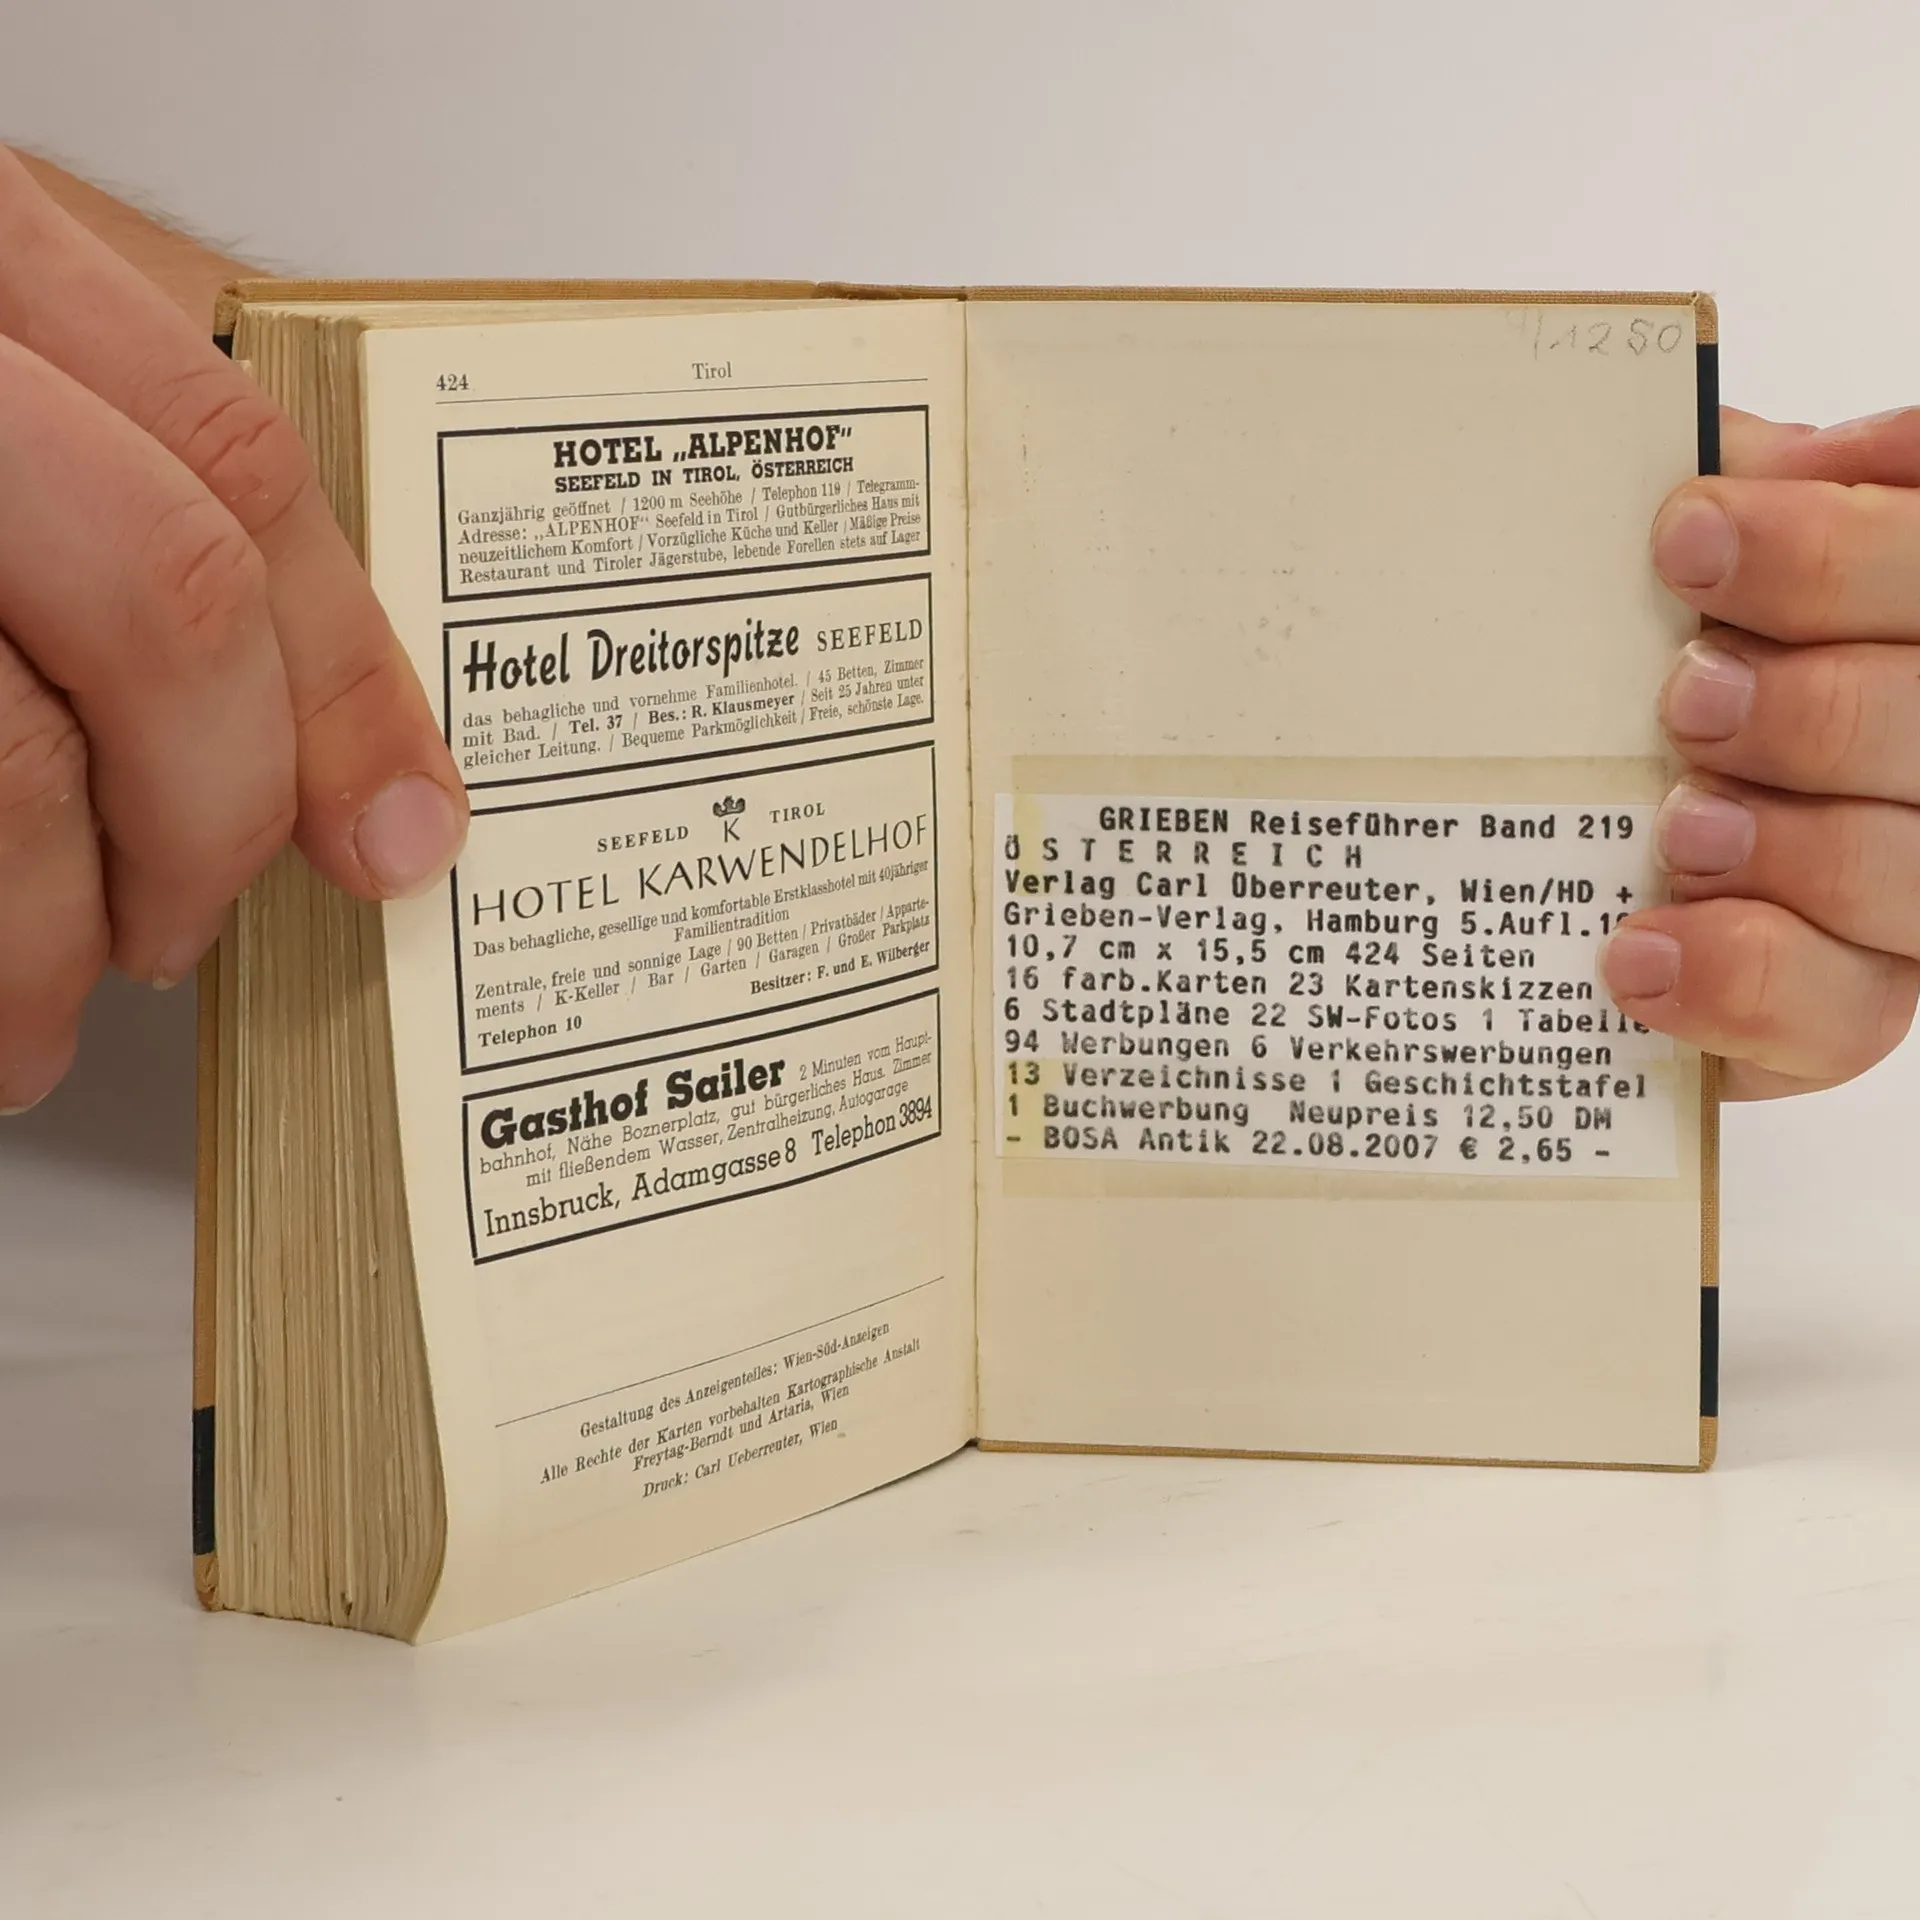 424
Tirol
HOTEL „ALPENHOF“
SEEFELD IN TIROL, ÖSTERREICH
Ganzjährig geöffnet / 1200 m Seehöhe / Telephon 119 / Telegramm-
Adresse: „ALPENHOF“ Seefeld in Tirol / Gutbürgerliches Haus mit
neuzeitlichem Komfort / Vorzügliche Küche und Keller / Mäßige Preise
Restaurant und Tiroler Jägerstube, lebende Forellen stets auf Lager
Hotel Dreitorspitze SEEFELD
das behagliche und vornehme Familienhotel. / 45 Betten, Zimmer
mit Bad. / Tel. 37 / Bes.: R. Klausmeyer / Seit 25 Jahren unter
gleicher Leitung. / Bequeme Parkmöglichkeit / Freie, schönste Lage.
SEEFELD K TIROL
HOTEL KARWENDELHOF
Das behagliche, gesellige und komfortable Erstklasshotel mit 40jähriger
Familientradition
Zentrale, freie und sonnige Lage / 90 Betten / Privatbäder / Apparte-
ments / K-Keller / Bar / Garten / Garagen / Großer Parkplatz
Besitzer: F. und E. Wilberger
Telephon 10
Gasthof Sailer 2 Minuten vom Haupt-
bahnhof, Nähe Boznerplatz, gut bürgerliches Haus. Zimmer
mit fließendem Wasser, Zentralheizung, Autogarage
Innsbruck, Adamgasse 8 Telephon 3894
Gestaltung des Anzeigenteiles: Wien-Süd-Anzeigen
Alle Rechte der Karten vorbehalten Kartographische Anstalt
Freytag-Berndt und Artaria, Wien
Druck: Carl Ueberreuter, Wien
12 50
GRIEBEN Reiseführer Band 219
Ö S T E R R E I C H
Verlag Carl Überreuter, Wien/HD +
Grieben-Verlag, Hamburg 5.Aufl.
10,7 cm x 15,5 cm 424 Seiten
16 farb.Karten 23 Kartenskizzen
6 Stadtpläne 22 SW-Fotos 1 Tabelle
94 Werbungen 6 Verkehrswerbungen
13 Verzeichnisse 1 Geschichtstafel
1 Buchwerbung Neupreis 12,50 DM
- BOSA Antik 22.08.2007 € 2,65 -